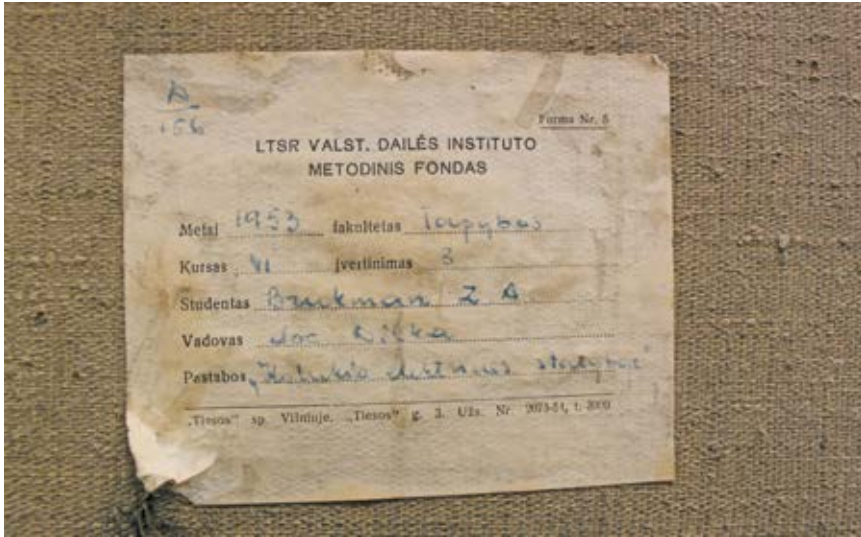 A
156
Forma Nr. 5
LTSR VALST. DAILĖS INSTITUTO
METODINIS FONDAS
Metai 1953 fakultetas Tapybos
Kursas VI įvertinimas 3
Studentas Bruckman Z A
Vadovas doc
Pastabos „
„Tiesos“ sp. Vilniuje, „Tiesos“ g. 3. Užs. Nr.